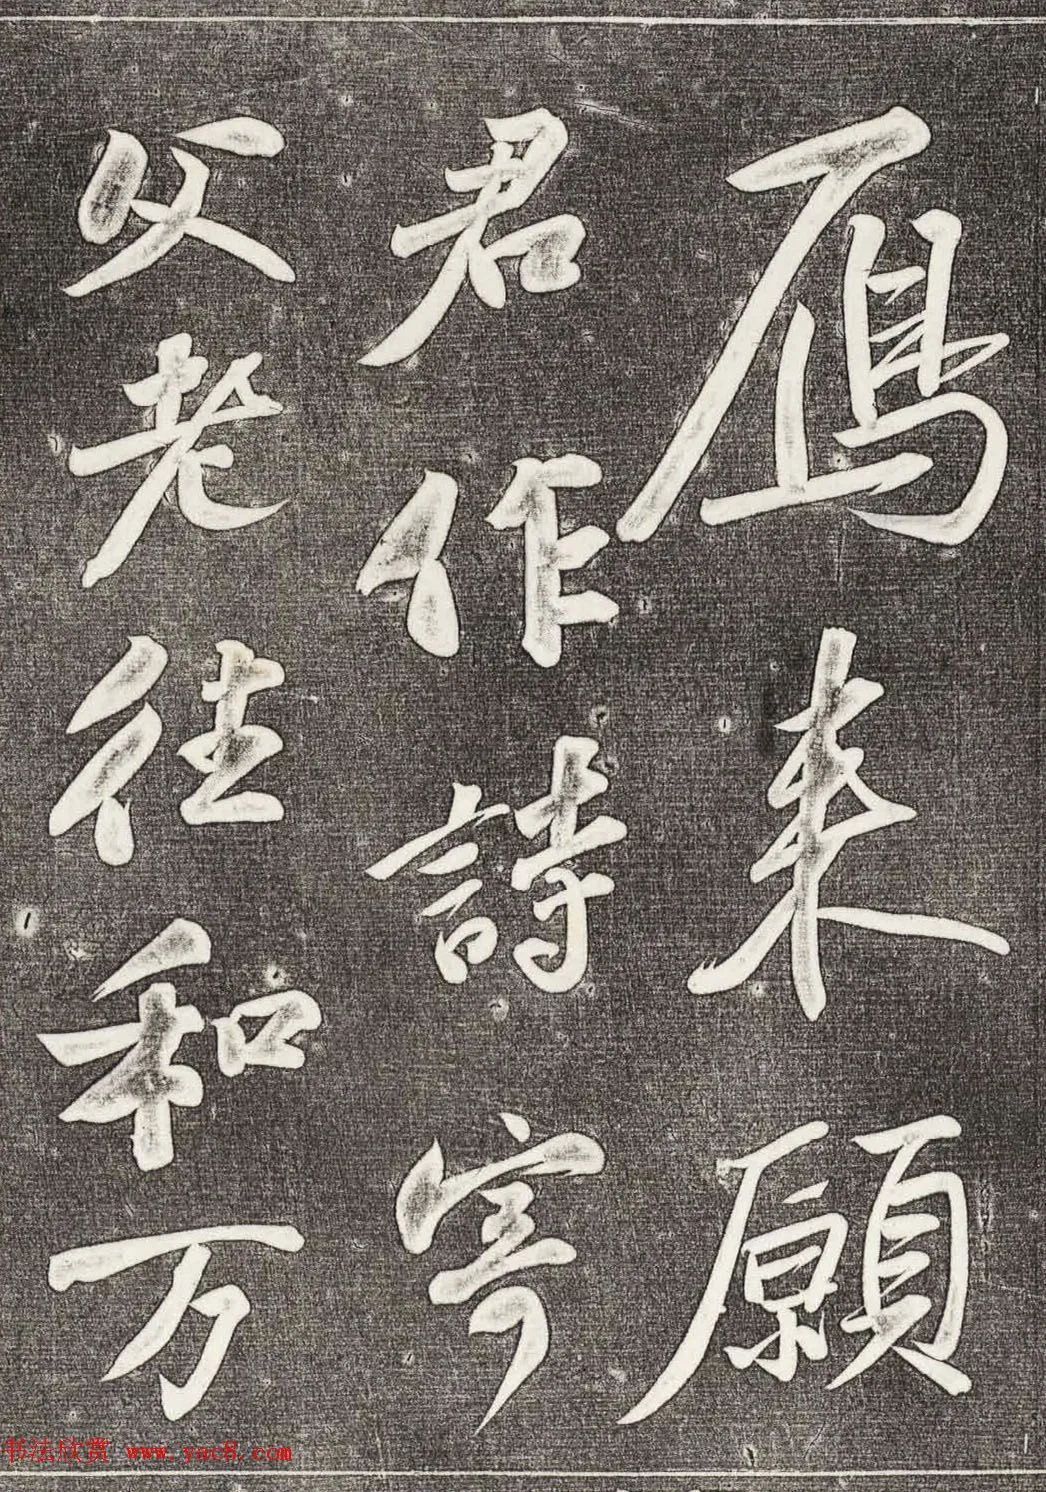 鴈来願
君作詩寄
父老往和万
书法欣赏 www.yac8.com